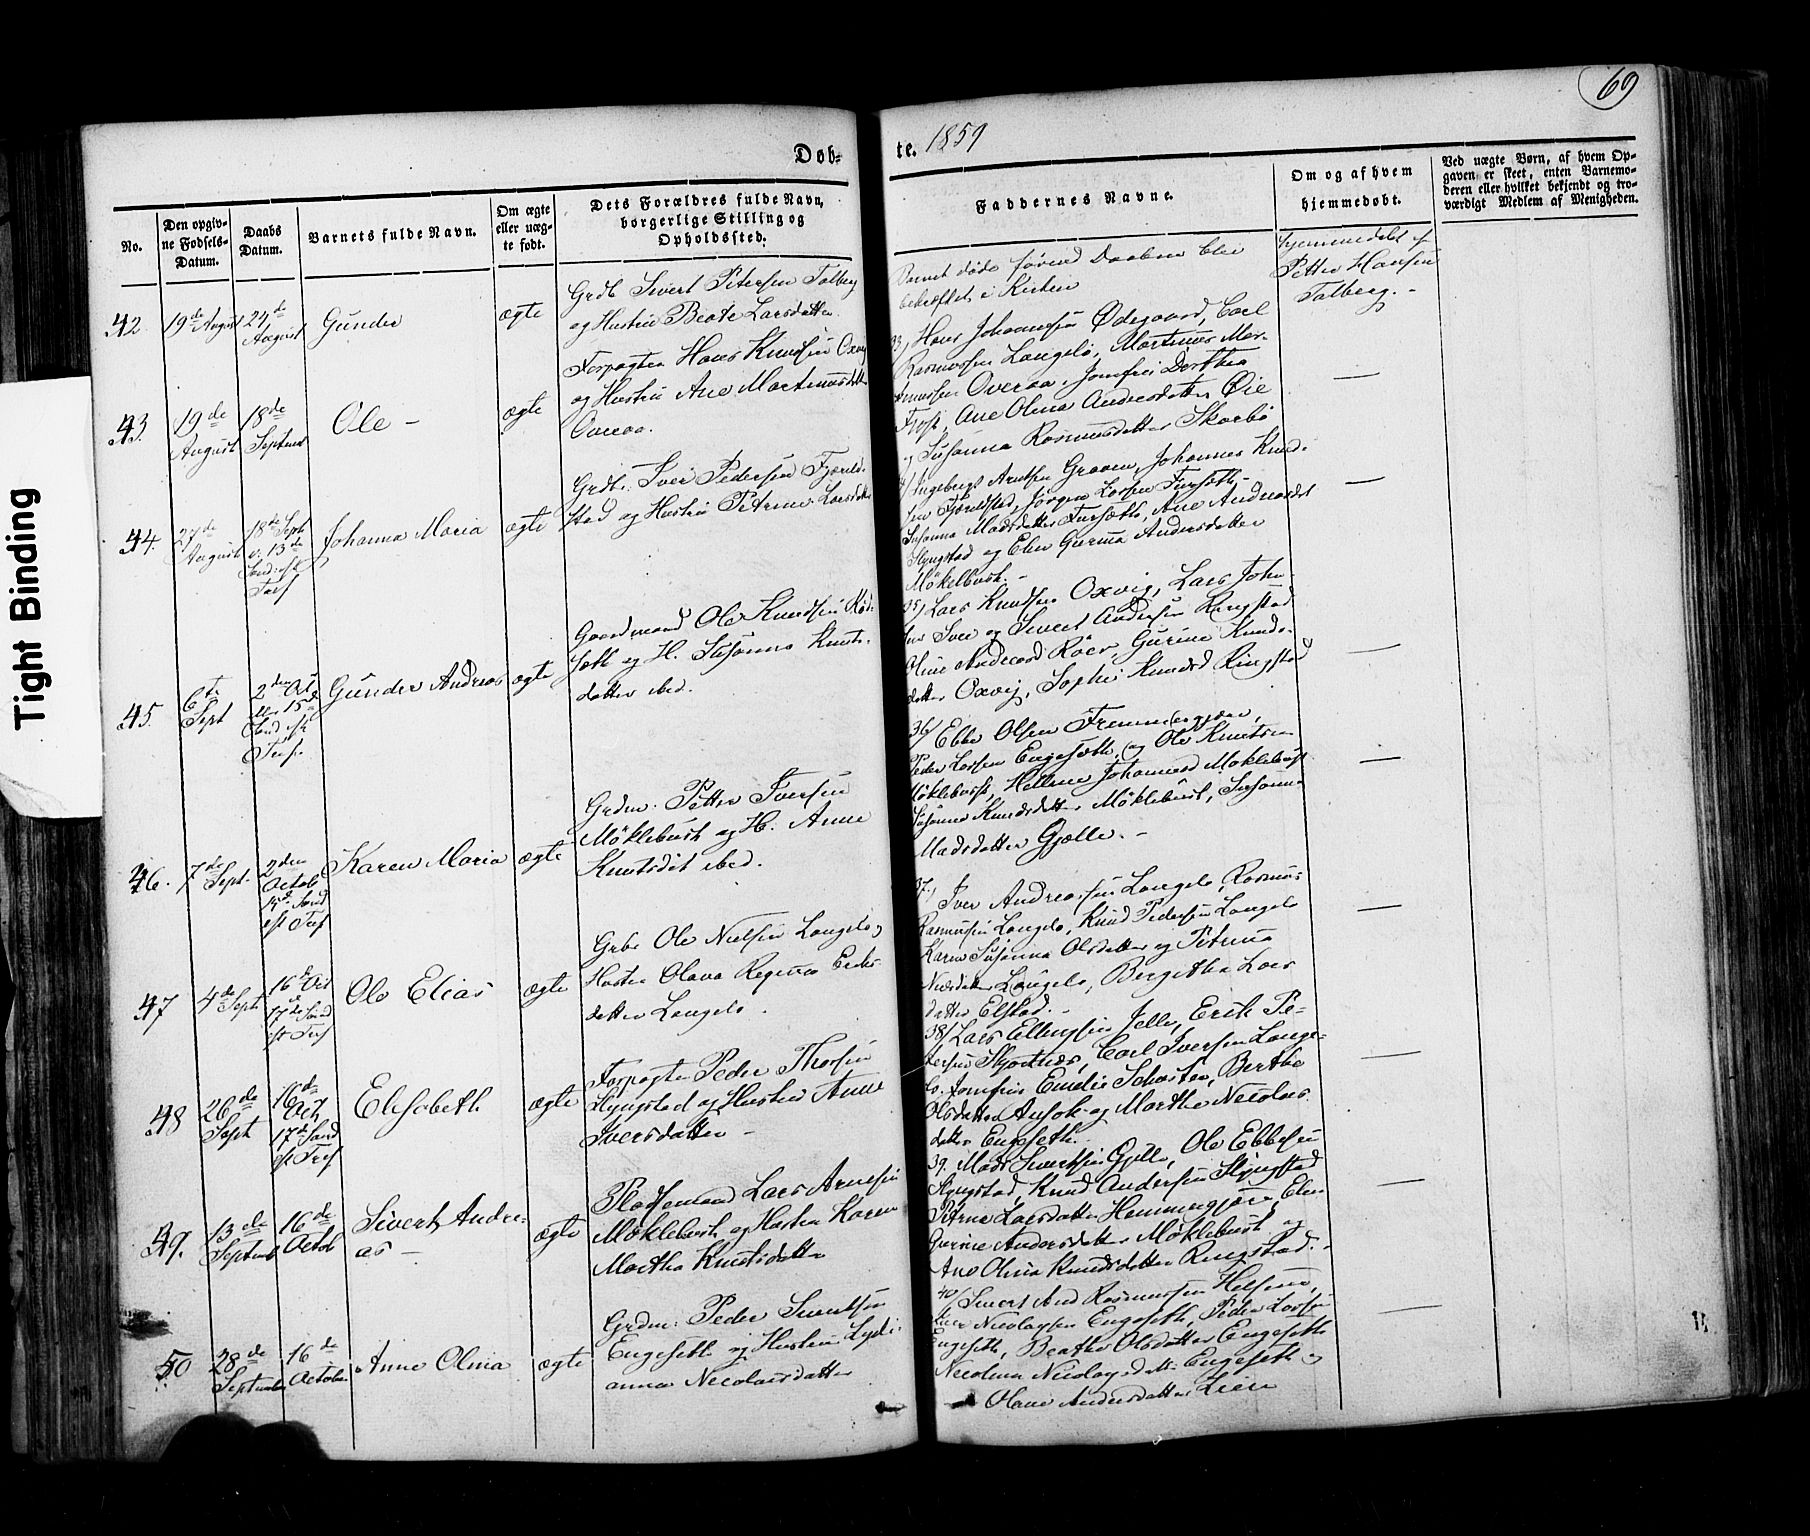 69
Døb-
te. 1859
No.
Den opgiv-
ne Fødsels-
Datum.
Daabs
Datum.
Barnets fulde Navn.
Om ægte
eller uæg-
te født.
Dets Forældres fulde Navn,
borgerlige Stilling og
Opholdssted.
Faddernes Navne.
Om og af hvem
hjemmedøbt.
Ved uægte Børn, af hvem Op-
gaven er skeet, enten Barnemo-
deren eller hvilket bekjendt og tro-
værdigt Medlem af Menigheden.
42.
19de August
24de
August
Gunder
ægte
Grdb. Sivert Petersen Talberg
og Hustru Beate Larsdatter
Barnet døde førend Daaben blev
bekræftet i Kirken
Hjemmedøbt af
Petter Hansen
Talberg.-
43.
19de
August
18de
Septemb
Ole -
ægte
Forpagter Hans Knudsen Oxvig
og Hustru Ane Martinusdatter
Overaa.
33/ Hans Johansen Ødegaard, Carl
Rasmussen Langelo, Martinus Mar-
tinussen Overaa, Jomfru Dorthea
Frost, Ane Olina Andersdatter Øie
og Susanna Rasmusdatter Skarbø
44.
27de
August
18de Sept
13de
Sønd: eft
Tref
Johanna Maria
ægte
Grdb. Iver Pedersen Fjørtel-
stad og Hustru Petrine Larsdatter
Ingebrigt Arntsen Graaen, Johannes Knud-
sen Fjørtelstad, Jørgen Larsen Fursæth-
Susanna Madsdatter Fursæth, Ane Andreasdt
Slyngstad og Elen Gurina Andersdatter
Møkelbust.-
45.
6te
Sept
2den Oct
15de
Sønd eft
Tref.
Gunder Andreas
ægte
Gaardmand Ole Knudsen
og H. Susanna Knuts-
datter ibd.
35/ Lars Knudsen Oxvig, Lars Johan-
og Sivert Andersen Ringstad
Oline Andreasd Røer, Gurine Knuds-
datter Oxvig, Sophie Knudsd Ringstad
46.
7de Sept.
2den
Octob
15de Sønd
eft Tref
Karen Maria
ægte
Grdm. Petter Iversen
Møklebust og H. Anne
Knutsdt ibd.
36/ Ebbe Olsen
Peder Larsen Engesæth, og Ole Knutsen
Møklebust, Helline Johannesd Møklebust
Susanna Knudsdatter Møklebust, Susanna
Madsdatter Gjælle.-
47
4de Sept
16de Oct
17de Sønd
eft Tref
Ole Elias
ægte
Grbr Ole Nielsen Langelo,
Hustru Olava Regina Eriks-
datter Langelo.
37/ Iver Andreassen Langelo, Rasmus
Rasmussen Langelo, Knud Pedersen Langelo
Karen Susanna Olsdatter og Petrina
Langelo, Bergitha Lars
datter Elstad.-
48
26de
Sept
16de
Oct
17de Sønd
eft Tref
Elisabeth
ægte
Forpagter Peder Thorsen
Slyngstad og Hustru Anne
Iversdatter -
38/ Lars Ellingsen Jelle, Erik Pe-
dersen Skjortnes, Carl Iversen Lange-
lo. Jomfru Emelie Schuster, Berthe
Olsdatter Ansok og Marthe Nicolais-
datter Engeseth.
49.
13de
Septemb
16de
Octob
Sivert Andre-
as -
ægte
Pladsemand Lars Arnesen
Møklebust og Hustru Karen
Martha Knutsdatter
39. Mads Sivertsen Gjelle, Ole Ebbesen
Slyngstad, Knud Andersen Slyngstad
Petrine Larsdatter Hammergjære, Elen
Gurine Andersdatter Møklebust og
Ane Olina Knudsdatter Ringstad.-
50
28de
September
16de
October
Anne Olina
ægte
Grdm: Peder Sivertsen
Engeseth og Hustru Lydi-
anna Nicolaisdatter
40/ Sivert And Rasmussen
Nicolaysen Engeseth, Peder Larsen
Engeseth, Beathe Olsdatter Engeseth
Nicolina Nicolaysdatter Engeseth og
Olave Andersdatter Lien
Tight Binding